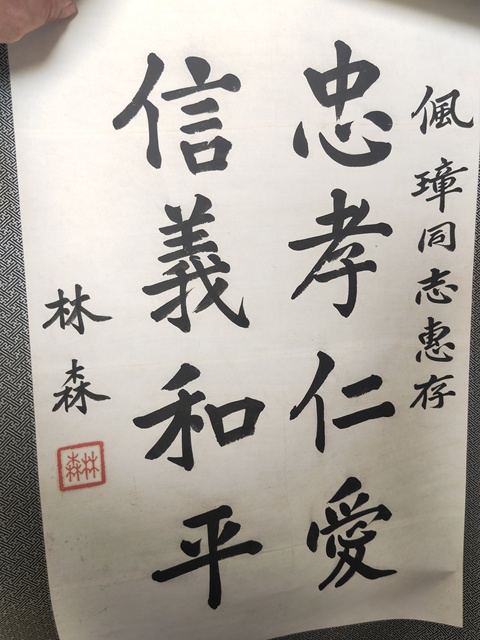 佩璋同志惠存
忠孝仁愛
信義和平
林森
林森